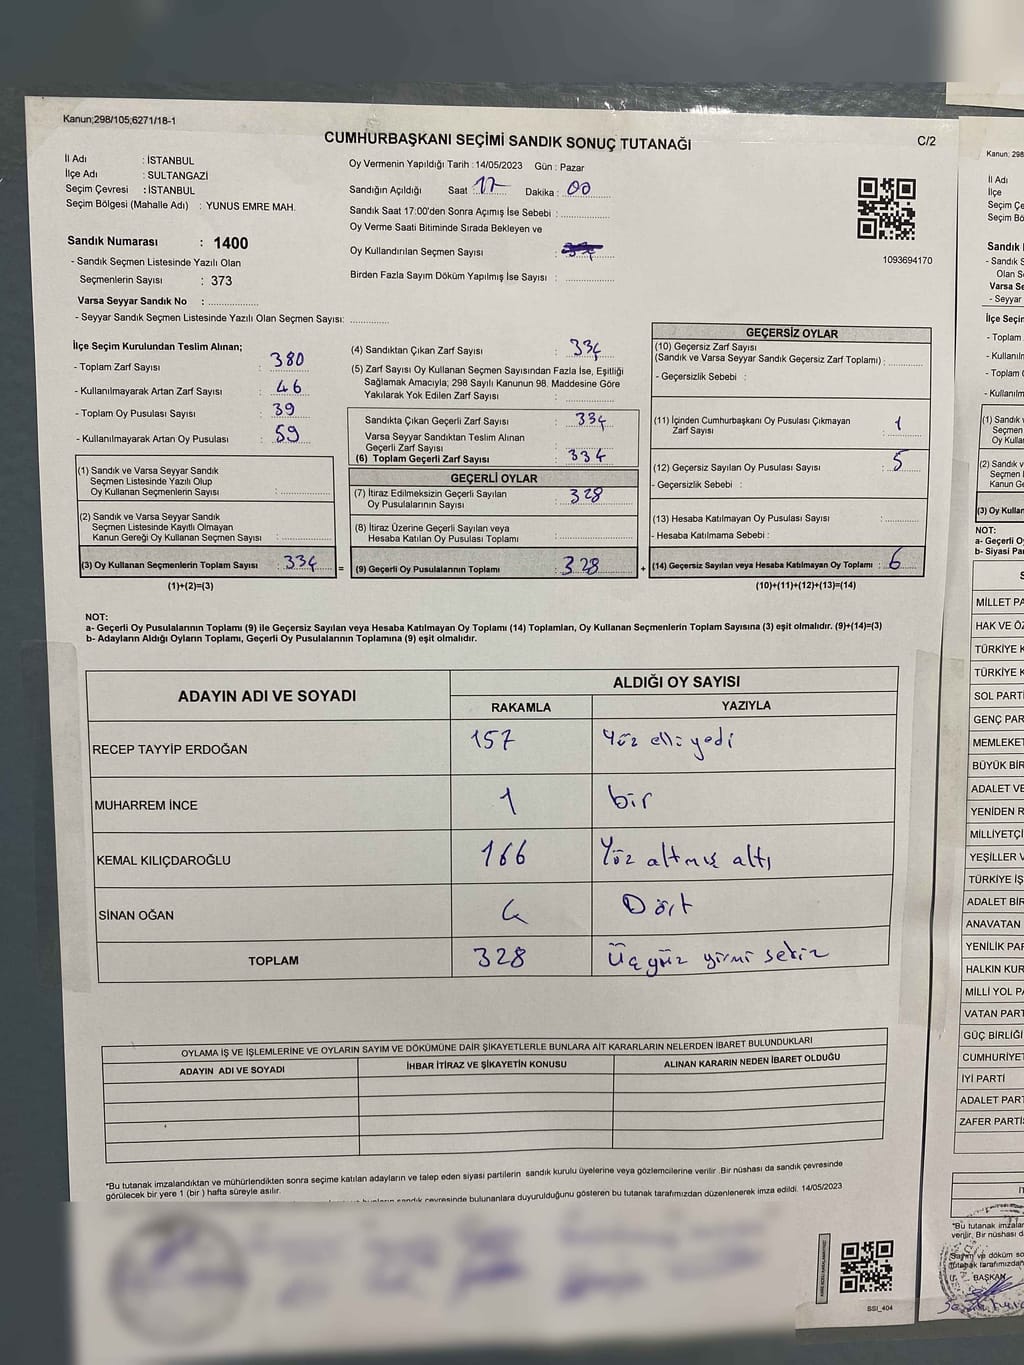 Kanun;298/105;6271/18-1
CUMHURBAŞKANI SEÇİMİ SANDIK SONUÇ TUTANAĞI
C/2
İl Adı : İSTANBUL
İlçe Adı : SULTANGAZİ
Seçim Çevresi : İSTANBUL
Seçim Bölgesi (Mahalle Adı) : YUNUS EMRE MAH.
Sandık Numarası : 1400
- Sandık Seçmen Listesinde Yazılı Olan
Seçmenlerin Sayısı : 373
Varsa Seyyar Sandık No :
- Seyyar Sandık Seçmen Listesinde Yazılı Olan Seçmen Sayısı:
Oy Vermenin Yapıldığı Tarih : 14/05/2023 Gün : Pazar
Sandığın Açıldığı Saat : 17 Dakika : 00
Sandık Saat 17:00'den Sonra Açımış İse Sebebi :
Oy Verme Saati Bitiminde Sırada Bekleyen ve
Oy Kullandırılan Seçmen Sayısı :
Birden Fazla Sayım Döküm Yapılmış İse Sayısı :
1093694170
İlçe Seçim Kurulundan Teslim Alınan;
- Toplam Zarf Sayısı : 380
- Kullanılmayarak Artan Zarf Sayısı : 46
- Toplam Oy Pusulası Sayısı : 39
- Kullanılmayarak Artan Oy Pusulası : 59
(1) Sandık ve Varsa Seyyar Sandık
Seçmen Listesinde Yazılı Olup
Oy Kullanan Seçmenlerin Sayısı :
(2) Sandık ve Varsa Seyyar Sandık
Seçmen Listesinde Kayıtlı Olmayan
Kanun Gereği Oy Kullanan Seçmen Sayısı :
(3) Oy Kullanan Seçmenlerin Toplam Sayısı : 334
(1)+(2)=(3)
(4) Sandıktan Çıkan Zarf Sayısı : 334
(5) Zarf Sayısı Oy Kullanan Seçmen Sayısından Fazla İse, Eşitliği
Sağlamak Amacıyla; 298 Sayılı Kanunun 98. Maddesine Göre
Yakılarak Yok Edilen Zarf Sayısı :
Sandıkta Çıkan Geçerli Zarf Sayısı : 334
Varsa Seyyar Sandıktan Teslim Alınan
Geçerli Zarf Sayısı :
(6) Toplam Geçerli Zarf Sayısı : 334
GEÇERLİ OYLAR
(7) İtiraz Edilmeksizin Geçerli Sayılan
Oy Pusulalarının Sayısı : 328
(8) İtiraz Üzerine Geçerli Sayılan veya
Hesaba Katılan Oy Pusulası Toplamı :
= (9) Geçerli Oy Pusulalarının Toplamı : 328 +
GEÇERSİZ OYLAR
(10) Geçersiz Zarf Sayısı
(Sandık ve Varsa Seyyar Sandık Geçersiz Zarf Toplamı) :
- Geçersizlik Sebebi :
(11) İçinden Cumhurbaşkanı Oy Pusulası Çıkmayan
Zarf Sayısı : 1
(12) Geçersiz Sayılan Oy Pusulası Sayısı : 5
- Geçersizlik Sebebi :
(13) Hesaba Katılmayan Oy Pusulası Sayısı :
- Hesaba Katılmama Sebebi :
(14) Geçersiz Sayılan veya Hesaba Katılmayan Oy Toplamı : 6
(10)+(11)+(12)+(13)=(14)
NOT:
a- Geçerli Oy Pusulalarının Toplamı (9) ile Geçersiz Sayılan veya Hesaba Katılmayan Oy Toplamı (14) Toplamları, Oy Kullanan Seçmenlerin Toplam Sayısına (3) eşit olmalıdır. (9)+(14)=(3)
b- Adayların Aldığı Oyların Toplamı, Geçerli Oy Pusulalarının Toplamına (9) eşit olmalıdır.
ADAYIN ADI VE SOYADI
ALDIĞI OY SAYISI
RAKAMLA YAZIYLA
RECEP TAYYİP ERDOĞAN 157 Yüz elli yedi
MUHARREM İNCE 1 bir
KEMAL KILIÇDAROĞLU 166 Yüz altmış altı
SİNAN OĞAN 4 Dört
TOPLAM 328 Üç yüz yirmi sekiz
OYLAMA İŞ VE İŞLEMLERİNE VE OYLARIN SAYIM VE DÖKÜMÜNE DAİR ŞİKAYETLERLE BUNLARA AİT KARARLARIN NELERDEN İBARET BULUNDUKLARI
ADAYIN ADI VE SOYADI İHBAR İTİRAZ VE ŞİKAYETİN KONUSU ALINAN KARARIN NEDEN İBARET OLDUĞU
*Bu tutanak imzalandıktan ve mühürlendikten sonra seçime katılan adayların ve talep eden siyasi partilerin sandık kurulu üyelerine veya gözlemcilerine verilir .Bir nüshası da sandık çevresinde
görülecek bir yere 1 (bir ) hafta süreyle asılır.
sandık çevresinde bulunanlara duyurulduğunu gösteren bu tutanak tarafımızdan düzenlenerek imza edildi. 14/05/2023
SSI_404
Kanun; 298
İl Adı
İlçe
Seçim Çe
Seçim Bö
Sandık
- Sandık S
Olan S
Varsa Se
- Seyyar
İlçe Seçin
- Toplam
- Kullanılı
- Toplam
- Kullanılm
(1) Sandık v
Seçmen
Oy Kulla
(2) Sandık
Seçmen
Kanun G
(3) Oy Kullan
NOT:
a- Geçerli O
b- Siyasi Pa
S
MİLLET PA
HAK VE ÖZ
TÜRKİYE K
TÜRKİYE K
SOL PARTİ
GENÇ PAR
MEMLEKET
BÜYÜK BİR
ADALET VE
YENİDEN R
MİLLİYETÇİ
YEŞİLLER V
TÜRKİYE İŞ
ADALET BİR
ANAVATAN
YENİLİK PAR
HALKIN KUR
MİLLİ YOL PA
VATAN PART
GÜÇ BİRLİĞİ
CUMHURİYET
İYİ PARTİ
ADALET PART
ZAFER PARTİS
*Bu tutanak imzalan
verilir. Bir nüshası d
Sayım ve döküm so
tutanak tarafımızdan
BAŞKAN